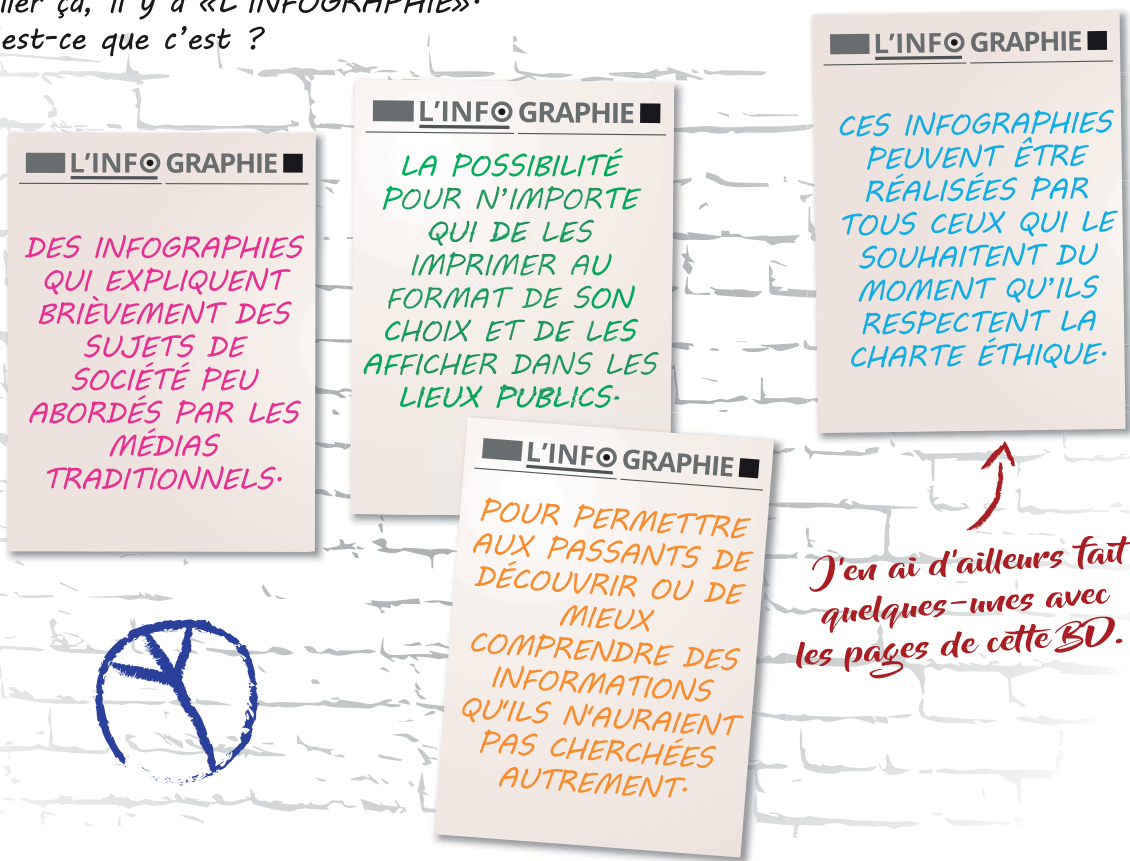 ça, il y a «L'INFOGRAPHIE».
est-ce que c'est ?
L'INFO GRAPHIE
DES INFOGRAPHIES
QUI EXPLIQUENT
BRIÈVEMENT DES
SUJETS DE
SOCIÉTÉ PEU
ABORDÉS PAR LES
MÉDIAS
TRADITIONNELS.
L'INFO GRAPHIE
LA POSSIBILITÉ
POUR N'IMPORTE
QUI DE LES
IMPRIMER AU
FORMAT DE SON
CHOIX ET DE LES
AFFICHER DANS LES
LIEUX PUBLICS.
L'INFO GRAPHIE
POUR PERMETTRE
AUX PASSANTS DE
DÉCOUVRIR OU DE
MIEUX
COMPRENDRE DES
INFORMATIONS
QU'ILS N'AURAIENT
PAS CHERCHÉES
AUTREMENT.
L'INFO GRAPHIE
CES INFOGRAPHIES
PEUVENT ÊTRE
RÉALISÉES PAR
TOUS CEUX QUI LE
SOUHAITENT DU
MOMENT QU'ILS
RESPECTENT LA
CHARTE ÉTHIQUE.
J'en ai d'ailleurs fait
quelques-unes avec
les pages de cette BD.